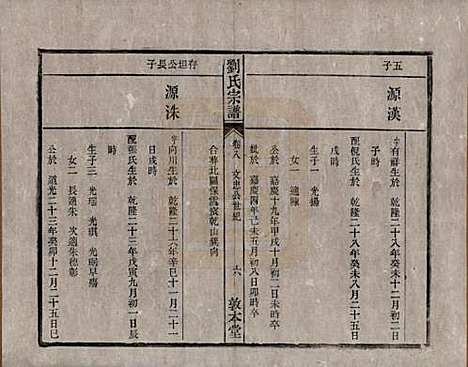 五子
源漢
字有蘇生於 乾隆二十八年癸未十二月初二日
子時
配倪氏生於 乾隆二十八年癸未八月二十五日
戌時
生子一 光揚
女一 適陳
公於 嘉慶十九年甲戌十月初二日未時卒
氏於 嘉慶四年己未五月初八日卯時卒
合葬北關保鳳宸乾山巽向
劉氏宗譜
卷八 文忠公世紀
十六
敦本堂
存坦公長子
源洙
字向川生於 乾隆二十六年辛巳十一月二十一
日戌時
配張氏生於 乾隆二十三年戊寅九月初一日辰
時
生子三 光瑤 光琪 光瑚早殤
女二 長適朱 次適朱德彰
公於 道光二十三年癸卯十二月二十五日巳